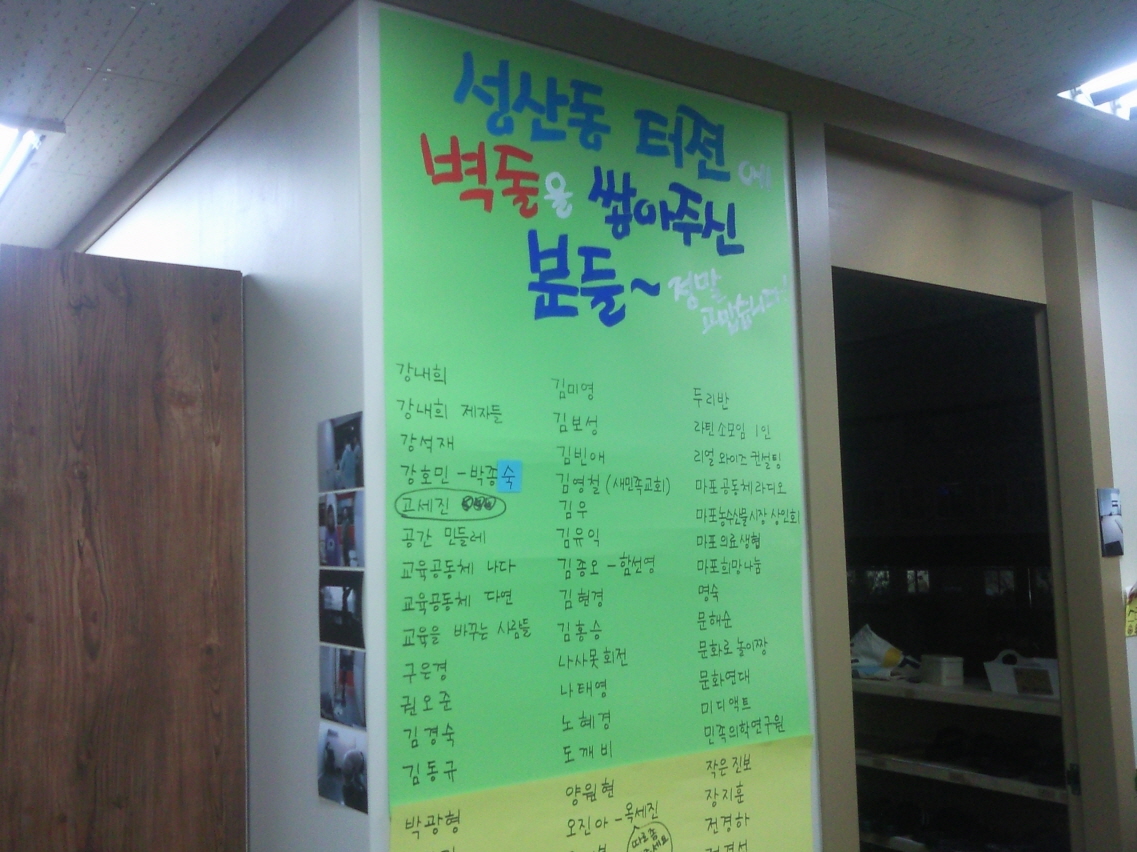 성산동 터젼에
벽돌을 쌓아주신
분들~ 정말
고맙습니다!
강내희
강내희 제자들
강석재
강호민 - 박종숙
고세진
공간 민들레
교육공동체 나다
교육공동체 다연
교육을 바꾸는 사람들
구은경
권오준
김경숙
김동규
박광형
김미영
김보성
김빈애
김영철 (새민족교회)
김우
김유익
김종오 - 함선영
김현경
김홍승
나사못회전
나태영
노혜경
도깨비
양원현
오진아 - 옥세진
두리반
라틴소모임 1인
리얼 와이즈 컨설팅
마포공동체라디오
마포농수산물시장 상인회
마포의료생협
마포희망나눔
명숙
문해순
문화로 놀이짱
문화연대
미디액트
민족의학연구원
작은진보
장지훈
전경하